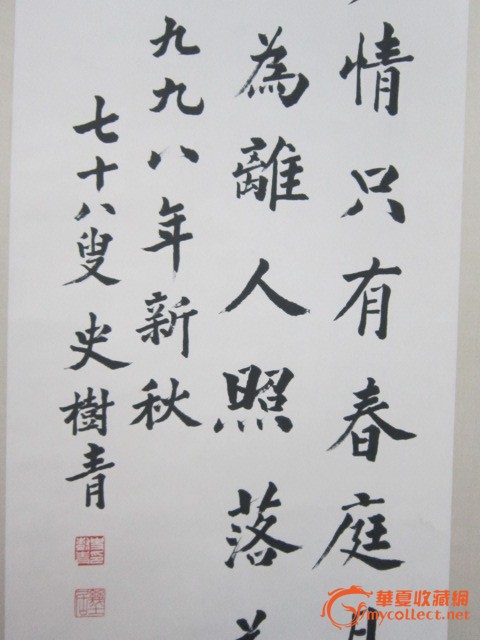 情只有春庭
為離人照落
九九八年新秋
七十八叟史樹青
華夏收藏網
mycollect.net